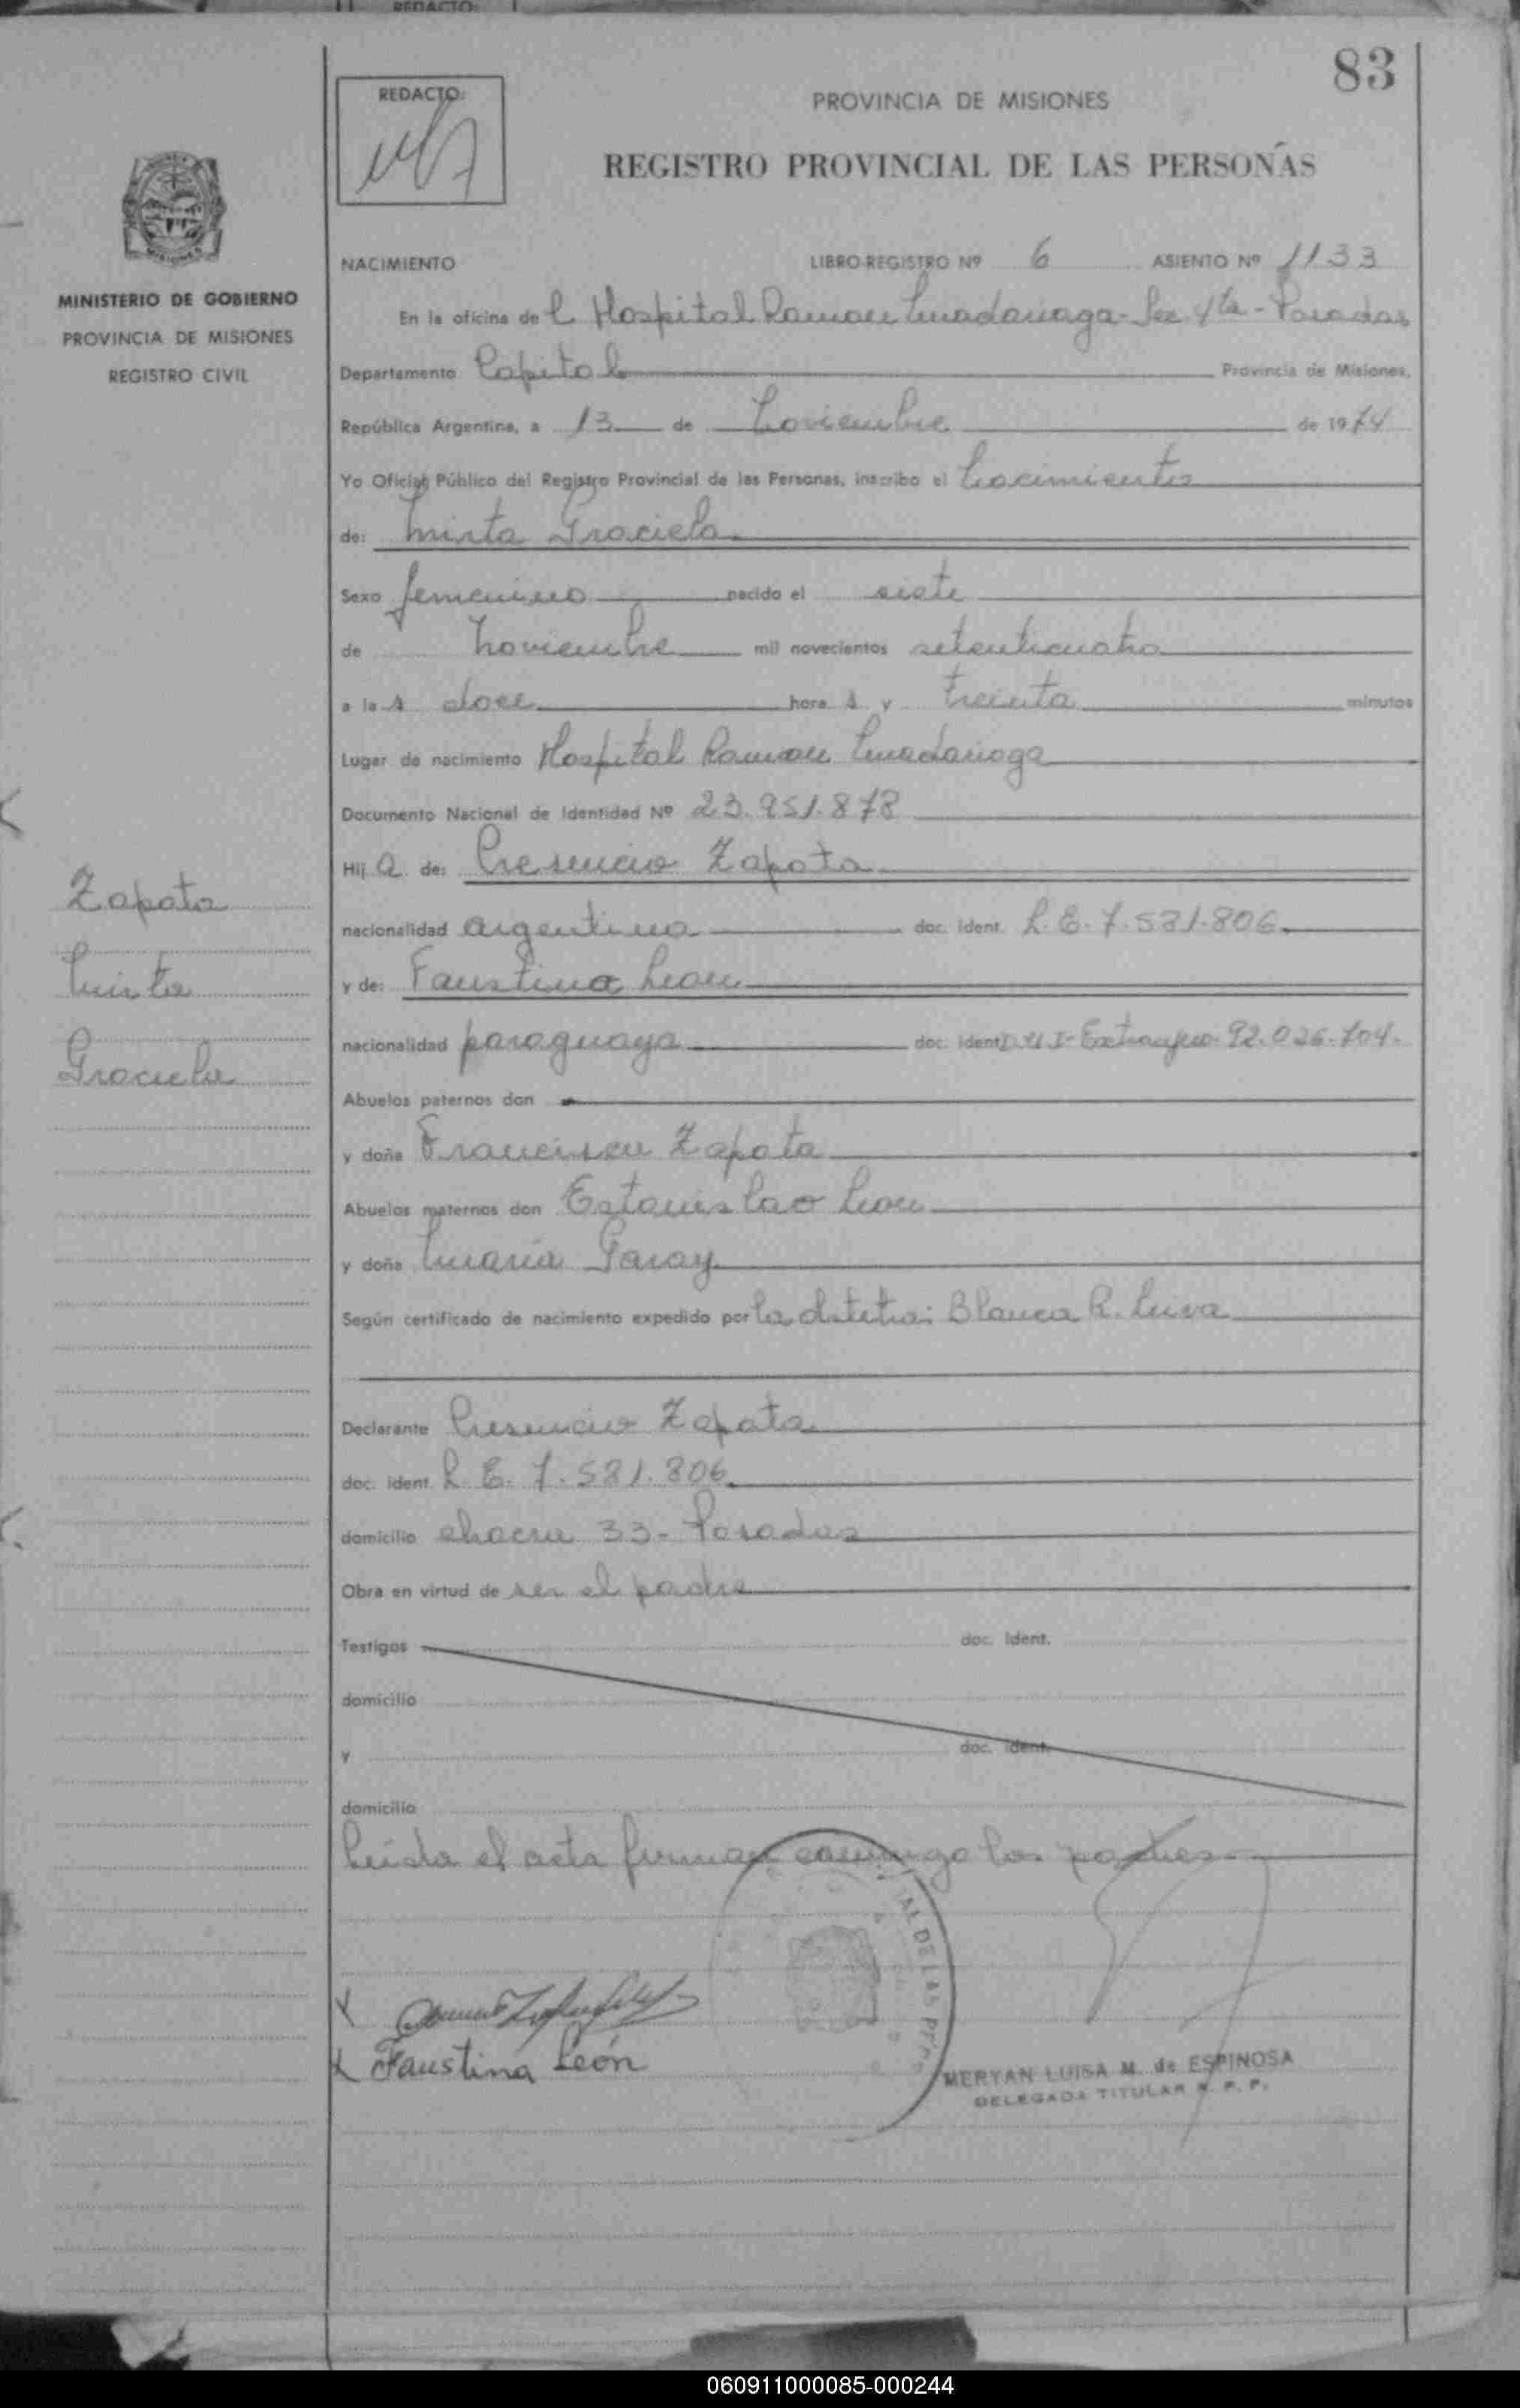 REDACTO:
83
REDACTO:
PROVINCIA DE MISIONES
REGISTRO PROVINCIAL DE LAS PERSONAS
MISIONES
MINISTERIO DE GOBIERNO
PROVINCIA DE MISIONES
REGISTRO CIVIL
NACIMIENTO LIBRO-REGISTRO Nº 6 ASIENTO Nº 1133
En la oficina del Hospital Ramon Madariaga - Sec 4ta - Posadas
Departamento Capital Provincia de Misiones,
República Argentina, a 13 de Noviembre de 1974
Yo Oficial Público del Registro Provincial de las Personas, inscribo el Nacimiento
de: Mirta Graciela
Sexo femenino nacido el siete
de Noviembre mil novecientos setenticuatro
a las doce horas y treinta minutos
Lugar de nacimiento Hospital Ramon Madariaga
Documento Nacional de Identidad Nº 23.951.878
Hija de: Cresencio Zapata
nacionalidad argentina doc. ident. L.E. 7.581.806
y de: Faustina Leon
nacionalidad paraguaya doc. ident D.N.I- Extranjero- 92.026.704-
Abuelos paternos don
y doña Francisca Zapata
Abuelos maternos don Estanislao Leon
y doña Maria Garay
Según certificado de nacimiento expedido por la obstetra: Blanca R. Leiva
Declarante Cresencio Zapata
doc. ident. L.E. 7.581.806
domicilio chacra 33- Posadas
Obra en virtud de ser el padre
Testigos doc. ident.
domicilio
y doc. ident.
domicilio
Leida el acta firman conmigo los padres-
Zapata
Mirta
Graciela
X
X Faustina León
AL DE LAS PERS
MERYAN LUISA M. de ESPINOSA
DELEGADA TITULAR R. P. P.
060911000085-000244